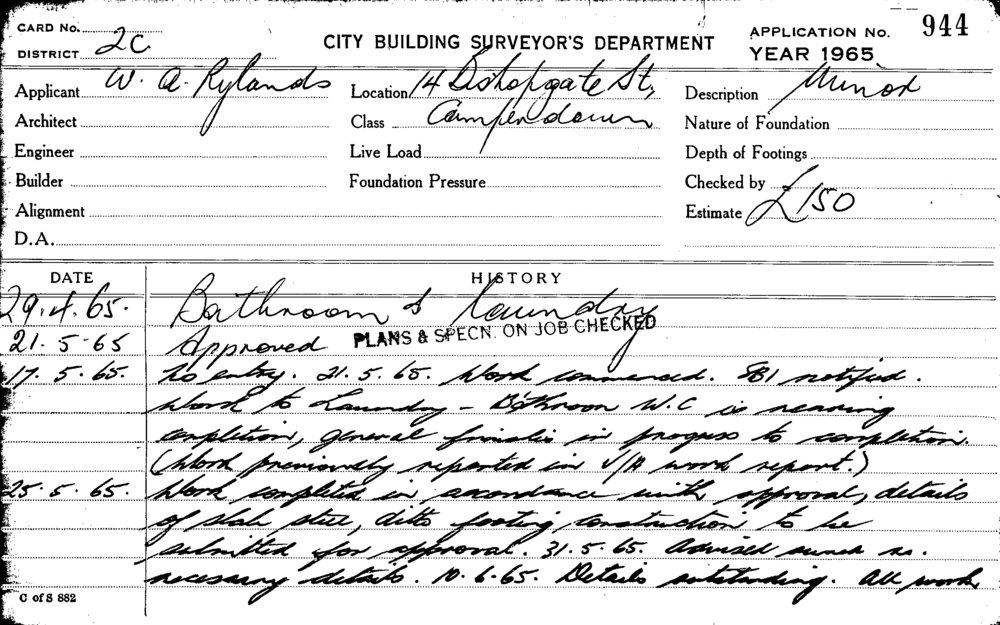 CARD No.
DISTRICT 2C
CITY BUILDING SURVEYOR'S DEPARTMENT
APPLICATION No. 944
YEAR 1965
Applicant W. A. Rylands
Location 14 Bishopgate St,
Description Minor
Architect
Class Camperdown
Nature of Foundation
Engineer
Live Load
Depth of Footings
Builder
Foundation Pressure
Checked by
Alignment
Estimate £150
D.A.
DATE HISTORY
29.4.65. Bathroom & Laundry
21.5.65 Approved PLANS & SPECN. ON JOB CHECKED
17.5.65. No entry. 21.5.65. Work commenced. SBI notified.
Work to Laundry - Bathroom W.C is nearing
completion, general finishes in progress to completion.
(Work previously reported in U/A work report.)
25.5.65. Work completed in accordance with approval, details
of slab steel, ditto footing construction to be
submitted for approval. 31.5.65. Advised owner re.
necessary details. 10.6.65. Details outstanding. All work,
C of S 882